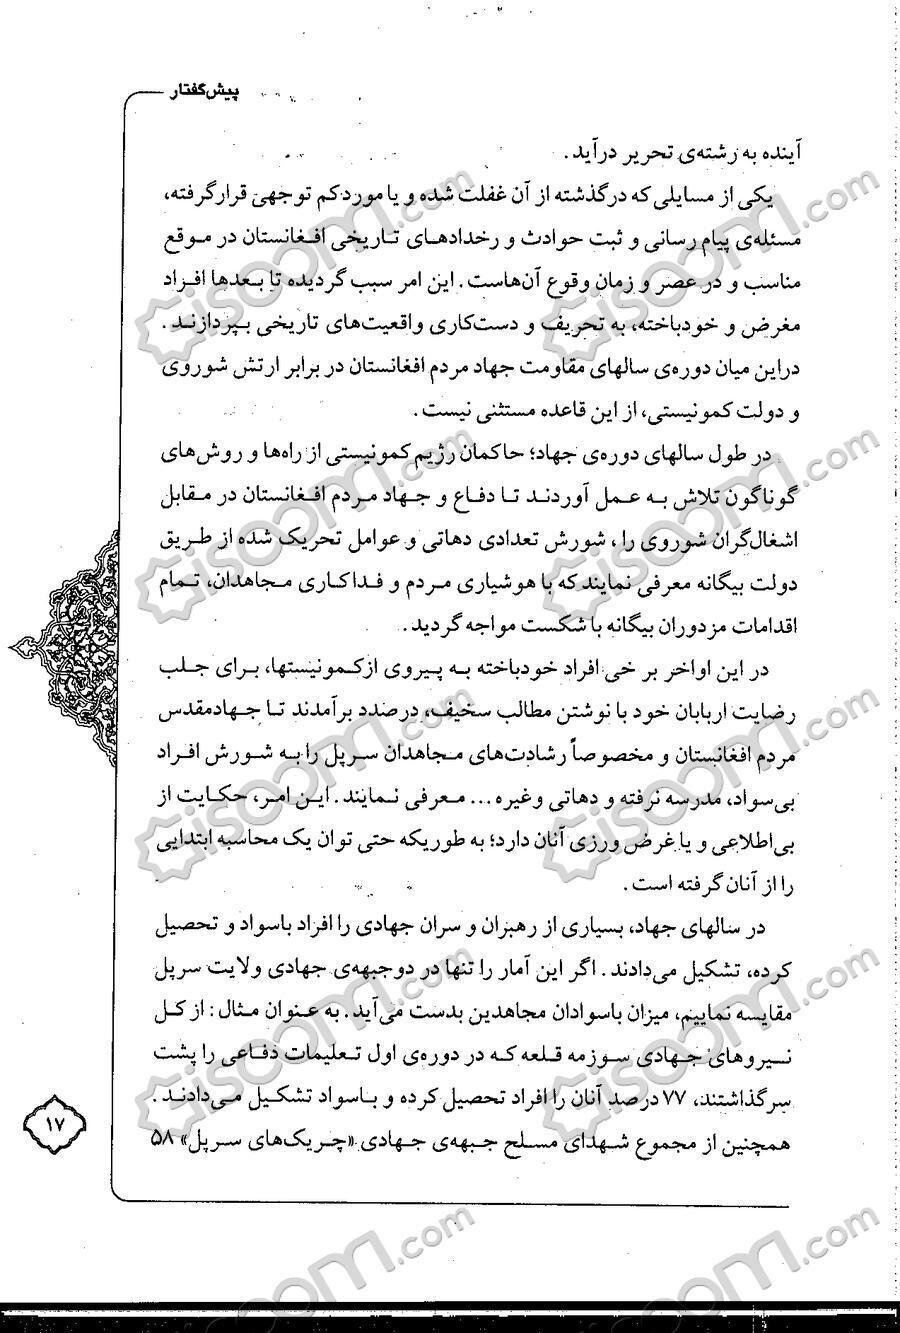 پیش‌گفتار
آینده به رشته‌ی تحریر درآید.
یکی از مسایلی که درگذشته از آن غفلت شده و یا مورد کم توجهی قرار گرفته،
مسئله‌ی پیام رسانی و ثبت حوادث و رخدادهای تاریخی افغانستان در موقع
مناسب و در عصر و زمان وقوع آن‌هاست. این امر سبب گردیده تا بعدها افراد
مغرض و خودباخته، به تحریف و دست‌کاری واقعیت‌های تاریخی بپردازند.
دراین میان دوره‌ی سالهای مقاومت جهاد مردم افغانستان در برابر ارتش شوروی
و دولت کمونیستی، از این قاعده مستثنی نیست.
در طول سالهای دوره‌ی جهاد؛ حاکمان رژیم کمونیستی از راه‌ها و روش‌های
گوناگون تلاش به عمل آوردند تا دفاع و جهاد مردم افغانستان در مقابل
اشغال‌گران شوروی را، شورش تعدادی دهاتی و عوامل تحریک شده از طریق
دولت بیگانه معرفی نمایند که با هوشیاری مردم و فداکاری مجاهدان، تمام
اقدامات مزدوران بیگانه با شکست مواجه گردید.
در این اواخر بر خی افراد خودباخته به پیروی از کمونیستها، برای جلب
رضایت اربابان خود با نوشتن مطالب سخیف، درصدد برآمدند تا جهادمقدس
مردم افغانستان و مخصوصاً رشادت‌های مجاهدان سرپل را به شورش افراد
بی‌سواد، مدرسه نرفته و دهاتی وغیره... معرفی نمایند. این امر، حکایت از
بی‌اطلاعی و یا غرض ورزی آنان دارد؛ به طوریکه حتی توان یک محاسبه ابتدایی
را از آنان گرفته است.
در سالهای جهاد، بسیاری از رهبران و سران جهادی را افراد باسواد و تحصیل
کرده، تشکیل می‌دادند. اگر این آمار را تنها در دوجبهه‌ی جهادی ولایت سرپل
مقایسه نماییم، میزان باسوادان مجاهدین بدست می‌آید. به عنوان مثال: از کل
نیروهای جهادی سوزمه قلعه که در دوره‌ی اول تعلیمات دفاعی را پشت
سرگذاشتند، ۷۷ درصد آنان را افراد تحصیل کرده و باسواد تشکیل می‌دادند.
همچنین از مجموع شهدای مسلح جبهه‌ی جهادی «چریک‌های سرپل» ۵۸
۱۷
Gisoom.com
Gisoom.com
Gisoom.com
Gisoom.com
Gisoom.com
Gisoom.com
Gisoom.com
Gisoom.com
Gisoom.com
Gisoom.com